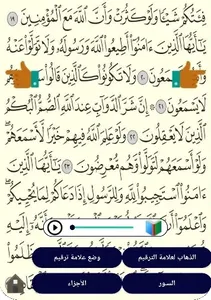 فِئَتُكُمْ شَيْئًا وَلَوْ كَثُرَتْ وَأَنَّ ٱللَّهَ مَعَ ٱلْمُؤْمِنِينَ ١٩
يَـٰٓأَيُّهَا ٱلَّذِينَ ءَامَنُوٓا۟ أَطِيعُوا۟ ٱللَّهَ وَرَسُولَهُۥ وَلَا تَوَلَّوْا۟ عَنْهُ
٢٠ وَلَا تَكُونُوا۟ كَٱلَّذِينَ قَالُوا۟
لَا يَسْمَعُونَ ٢١ إِنَّ شَرَّ ٱلدَّوَآبِّ عِندَ ٱللَّهِ ٱلصُّمُّ ٱلْبُكْمُ
ٱلَّذِينَ لَا يَعْقِلُونَ ٢٢ وَلَوْ عَلِمَ ٱللَّهُ فِيهِمْ خَيْرًا لَّأَسْمَعَهُمْ
وَلَوْ أَسْمَعَهُمْ لَتَوَلَّوا۟ وَّهُم مُّعْرِضُونَ ٢٣ يَـٰٓأَيُّهَا ٱلَّذِينَ
ءَامَنُوا۟ ٱسْتَجِيبُوا۟ لِلَّهِ وَلِلرَّسُولِ إِذَا دَعَاكُمْ لِمَا يُحْيِيكُمْ
وَٱعْلَمُوٓا۟ أَنَّ إِلَيْهِ
الذهاب لعلامة الترقيم
وضع علامة ترقيم
السور
الاجزاء